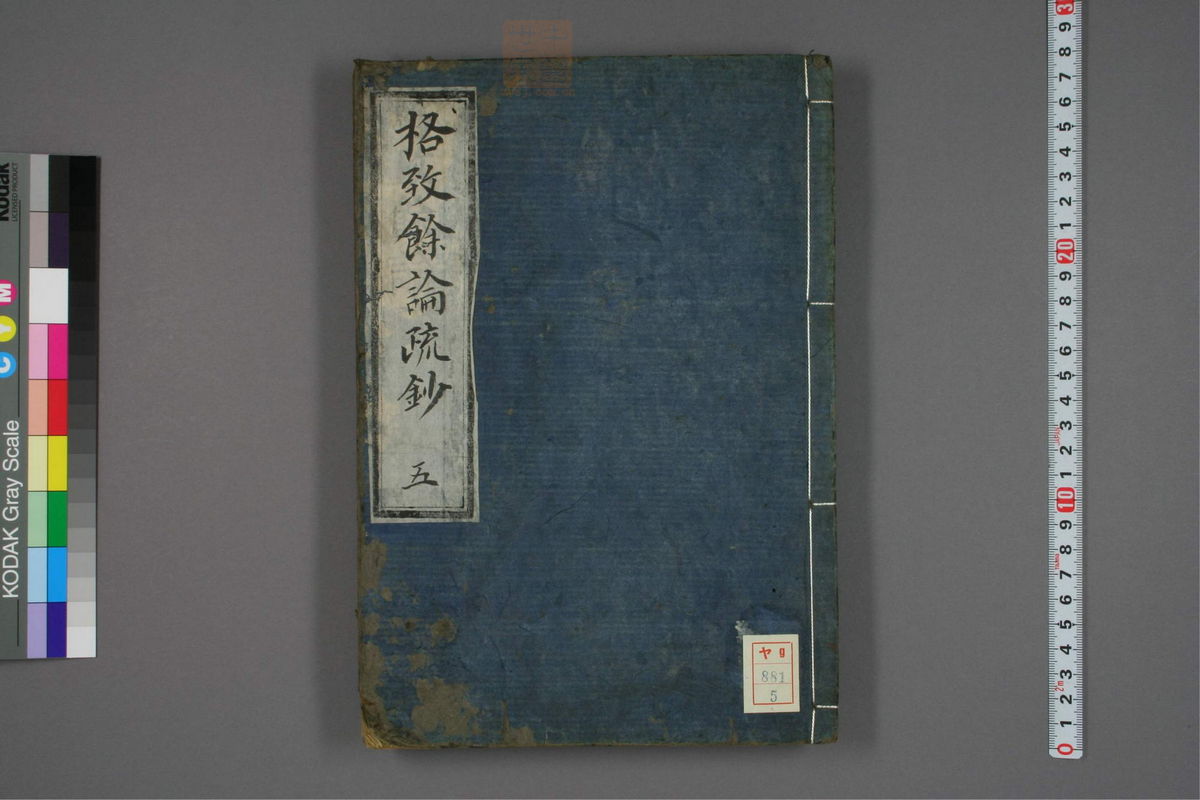 格致餘論疏鈔 五
ヤ9
881
5
Kodak
LICENSED PRODUCT
C Y M
KODAK Gray Scale
3
9
8
7
6
5
4
3
2
1
20
9
8
7
6
5
4
3
2
1
10
9
8
7
6
5
4
3
2
1
0
JAPAN
2m